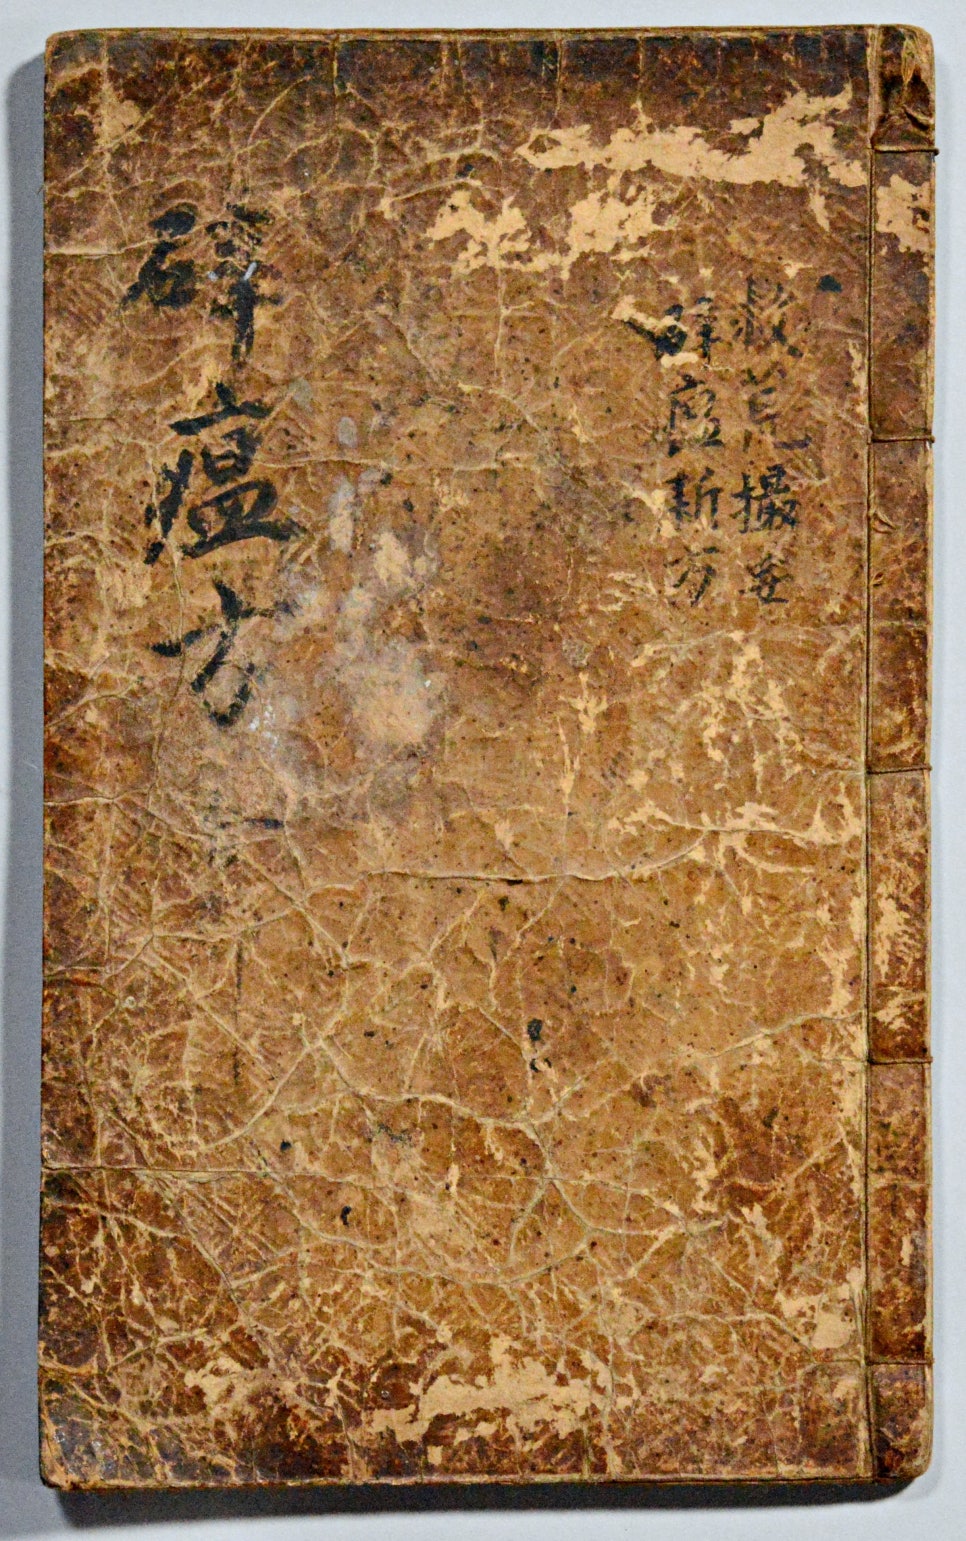 救荒撮要
辟瘟新方
辟瘟方